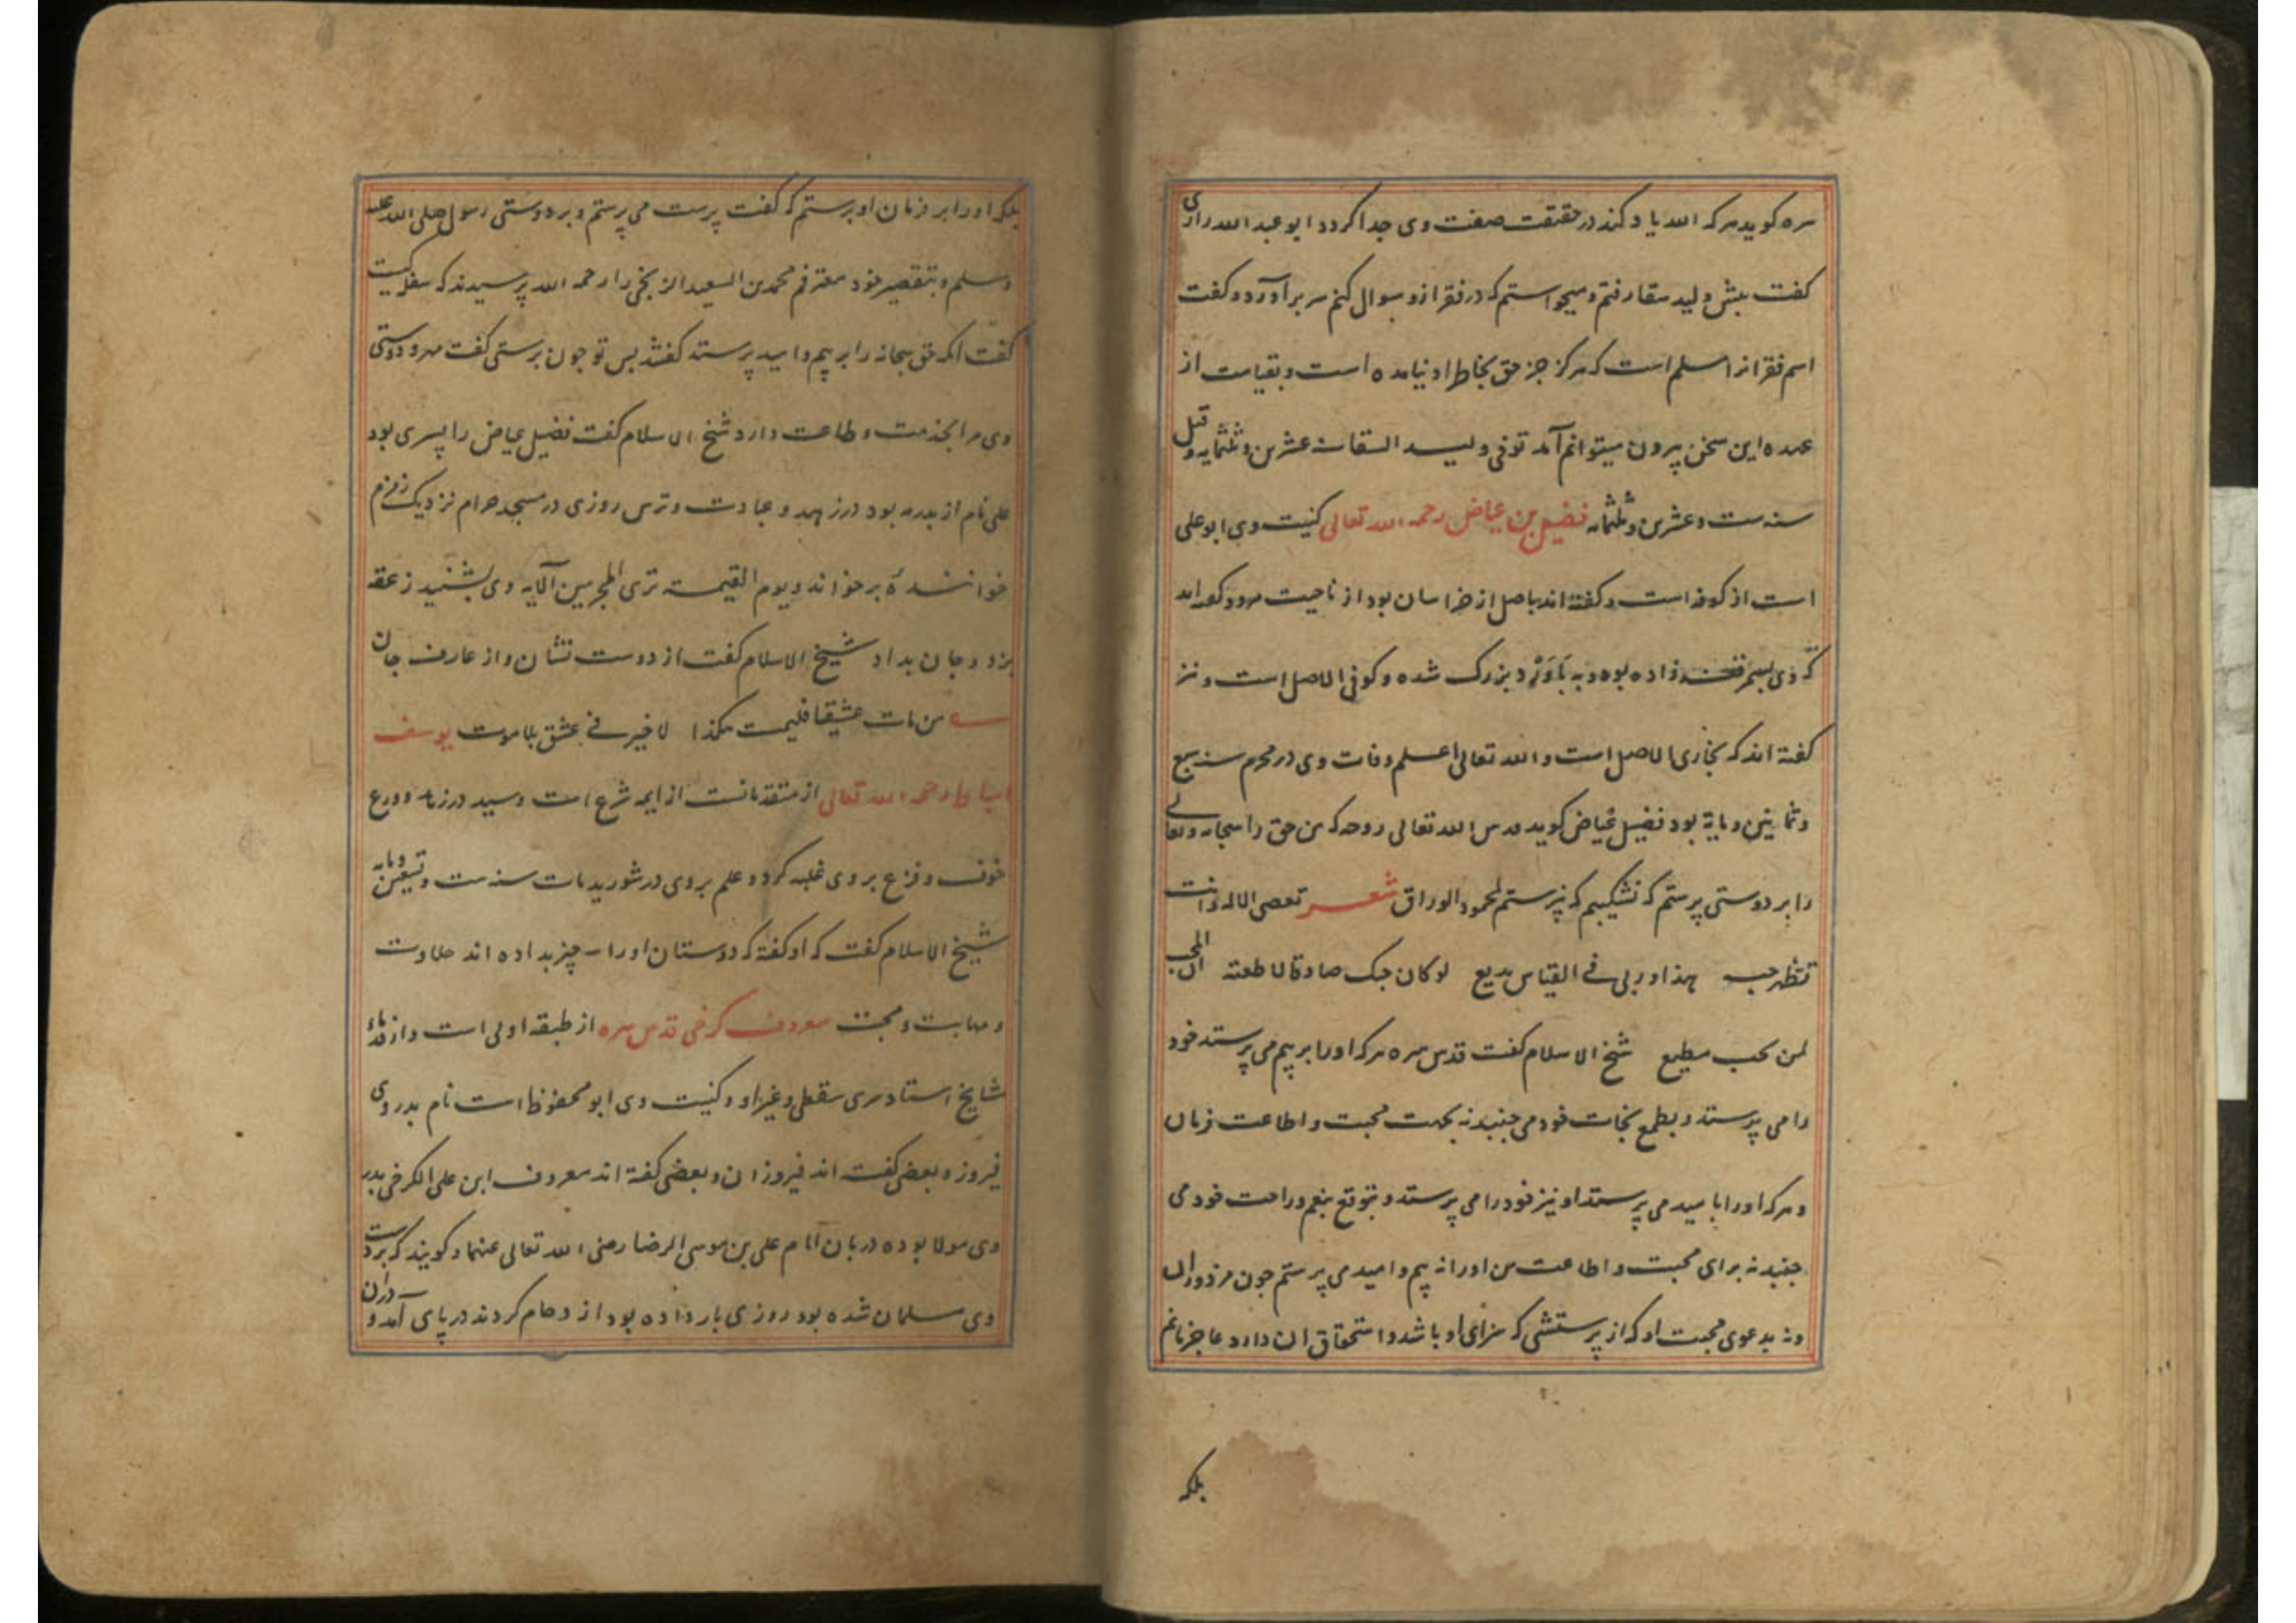 سره کوید هرکه الله یاد کند در حقیقت صفت وی جدا کردد ابو عبد الله رازی
کفت پیش ولید سقا رفتم و میخواستم که در فقر ازو سوال کنم سر برآورد و کفت
اسم فقر انرا مسلم است که هرکز جز حق بخاطر او نیامده است و بقیامت از
عهده این سخن بیرون میتوانم آمد توفی ولید السقا سنه عشرین و ثلثمایه و قیل
سنه ست و عشرین و ثلثمایه فضیل بن عیاض رحمه الله تعالی کنیت وی ابو علی
است از کوفه است و کفته اند باصل از خراسان بود از ناحیت مرو و کفته اند
که وی بسمرقند زاده بوده و به باورد بزرک شده و کوفی الاصل است و نیز
کفته اند که بخاری الاصل است و الله تعالی اعلم وفات وی در محرم سنه سبع
و ثمانین و مایة بود فضیل عیاض کوید قدس الله تعالی روحه که من حق را سبحانه و تعالی
را بر دوستی پرستم که نشکیبم که نپرستم لمحمود الوراق شعر تعصی الاله و انت
تظهر حبه هذا و ربی فی القیاس بدیع لو کان حبک صادقا لاطعته ان المحب
لمن یحب مطیع شیخ الاسلام کفت قدس سره هرکه او را بر بیم می پرستد خود
را می پرستد و بطمع نجات خود می جنبد نه بجهت محبت و اطاعت فرمان
و هرکه او را بامید می پرستد او نیز خود را می پرستد و بتوقع تنعم و راحت خود می
جنبد نه برای محبت و اطاعت من او را نه بیم و امید می پرستم جون مزدوران
و نه بدعوی محبت او که از پرستشی که سزای او باشد و استحقاق ان دارد عاجز مانم
بلکه
بلکه او را بر فرمان او پرستم که کفت پرست می پرستم و بر دوستی رسول صلی الله علیه
و سلم و بتقصیر خود معترفم محمد بن السعید الزنجی را رحمه الله پرسیدند که سفله کیست
کفت انکه حق سبحانه را بر بیم و امید پرستد کفتند بس تو جون پرستی کفت مهر و دوستی
وی مرا بخدمت و طاعت دارد شیخ الاسلام کفت فضیل عیاض را پسری بود
علی نام از پدر مه بود در زهد و عبادت و ترس روزی در مسجد حرام نزدیک زمزم
خوانندهٔ برخواند و یوم القیمة تری المجرمین الآیه وی بشنید زعقه
بزد و جان بداد شیخ الاسلام کفت از دوست نشان و از عارف جان
من مات عشیقا فلیمت هکذا لا خیر فی عشق بلا موت یوسف
اسباط رحمه الله تعالی از متقدمانست از ایمه شرع است و سید در زهد و ورع
خوف و فزع بر وی غلبه کرد و علم بر وی در شورید مات سنه ست و تسعین و مایه
شیخ الاسلام کفت که او کفته که دوستان او را سه چیز بداده اند حلاوت
و مهابت و محبت معروف کرخی قدس سره از طبقه اولی است و از قدماء
مشایخ استاد سری سقطی و غیر او و کنیت وی ابو محفوظ است نام پدر وی
فیروز و بعضی کفته اند فیروزان و بعضی کفته اند معروف ابن علی الکرخی پدر
وی مولا بوده دربان امام علی بن موسی الرضا رضی الله تعالی عنهما و کویند که بر دست
وی مسلمان شده بود روزی بار داده بود ازدحام کردند در پای آمد و دران